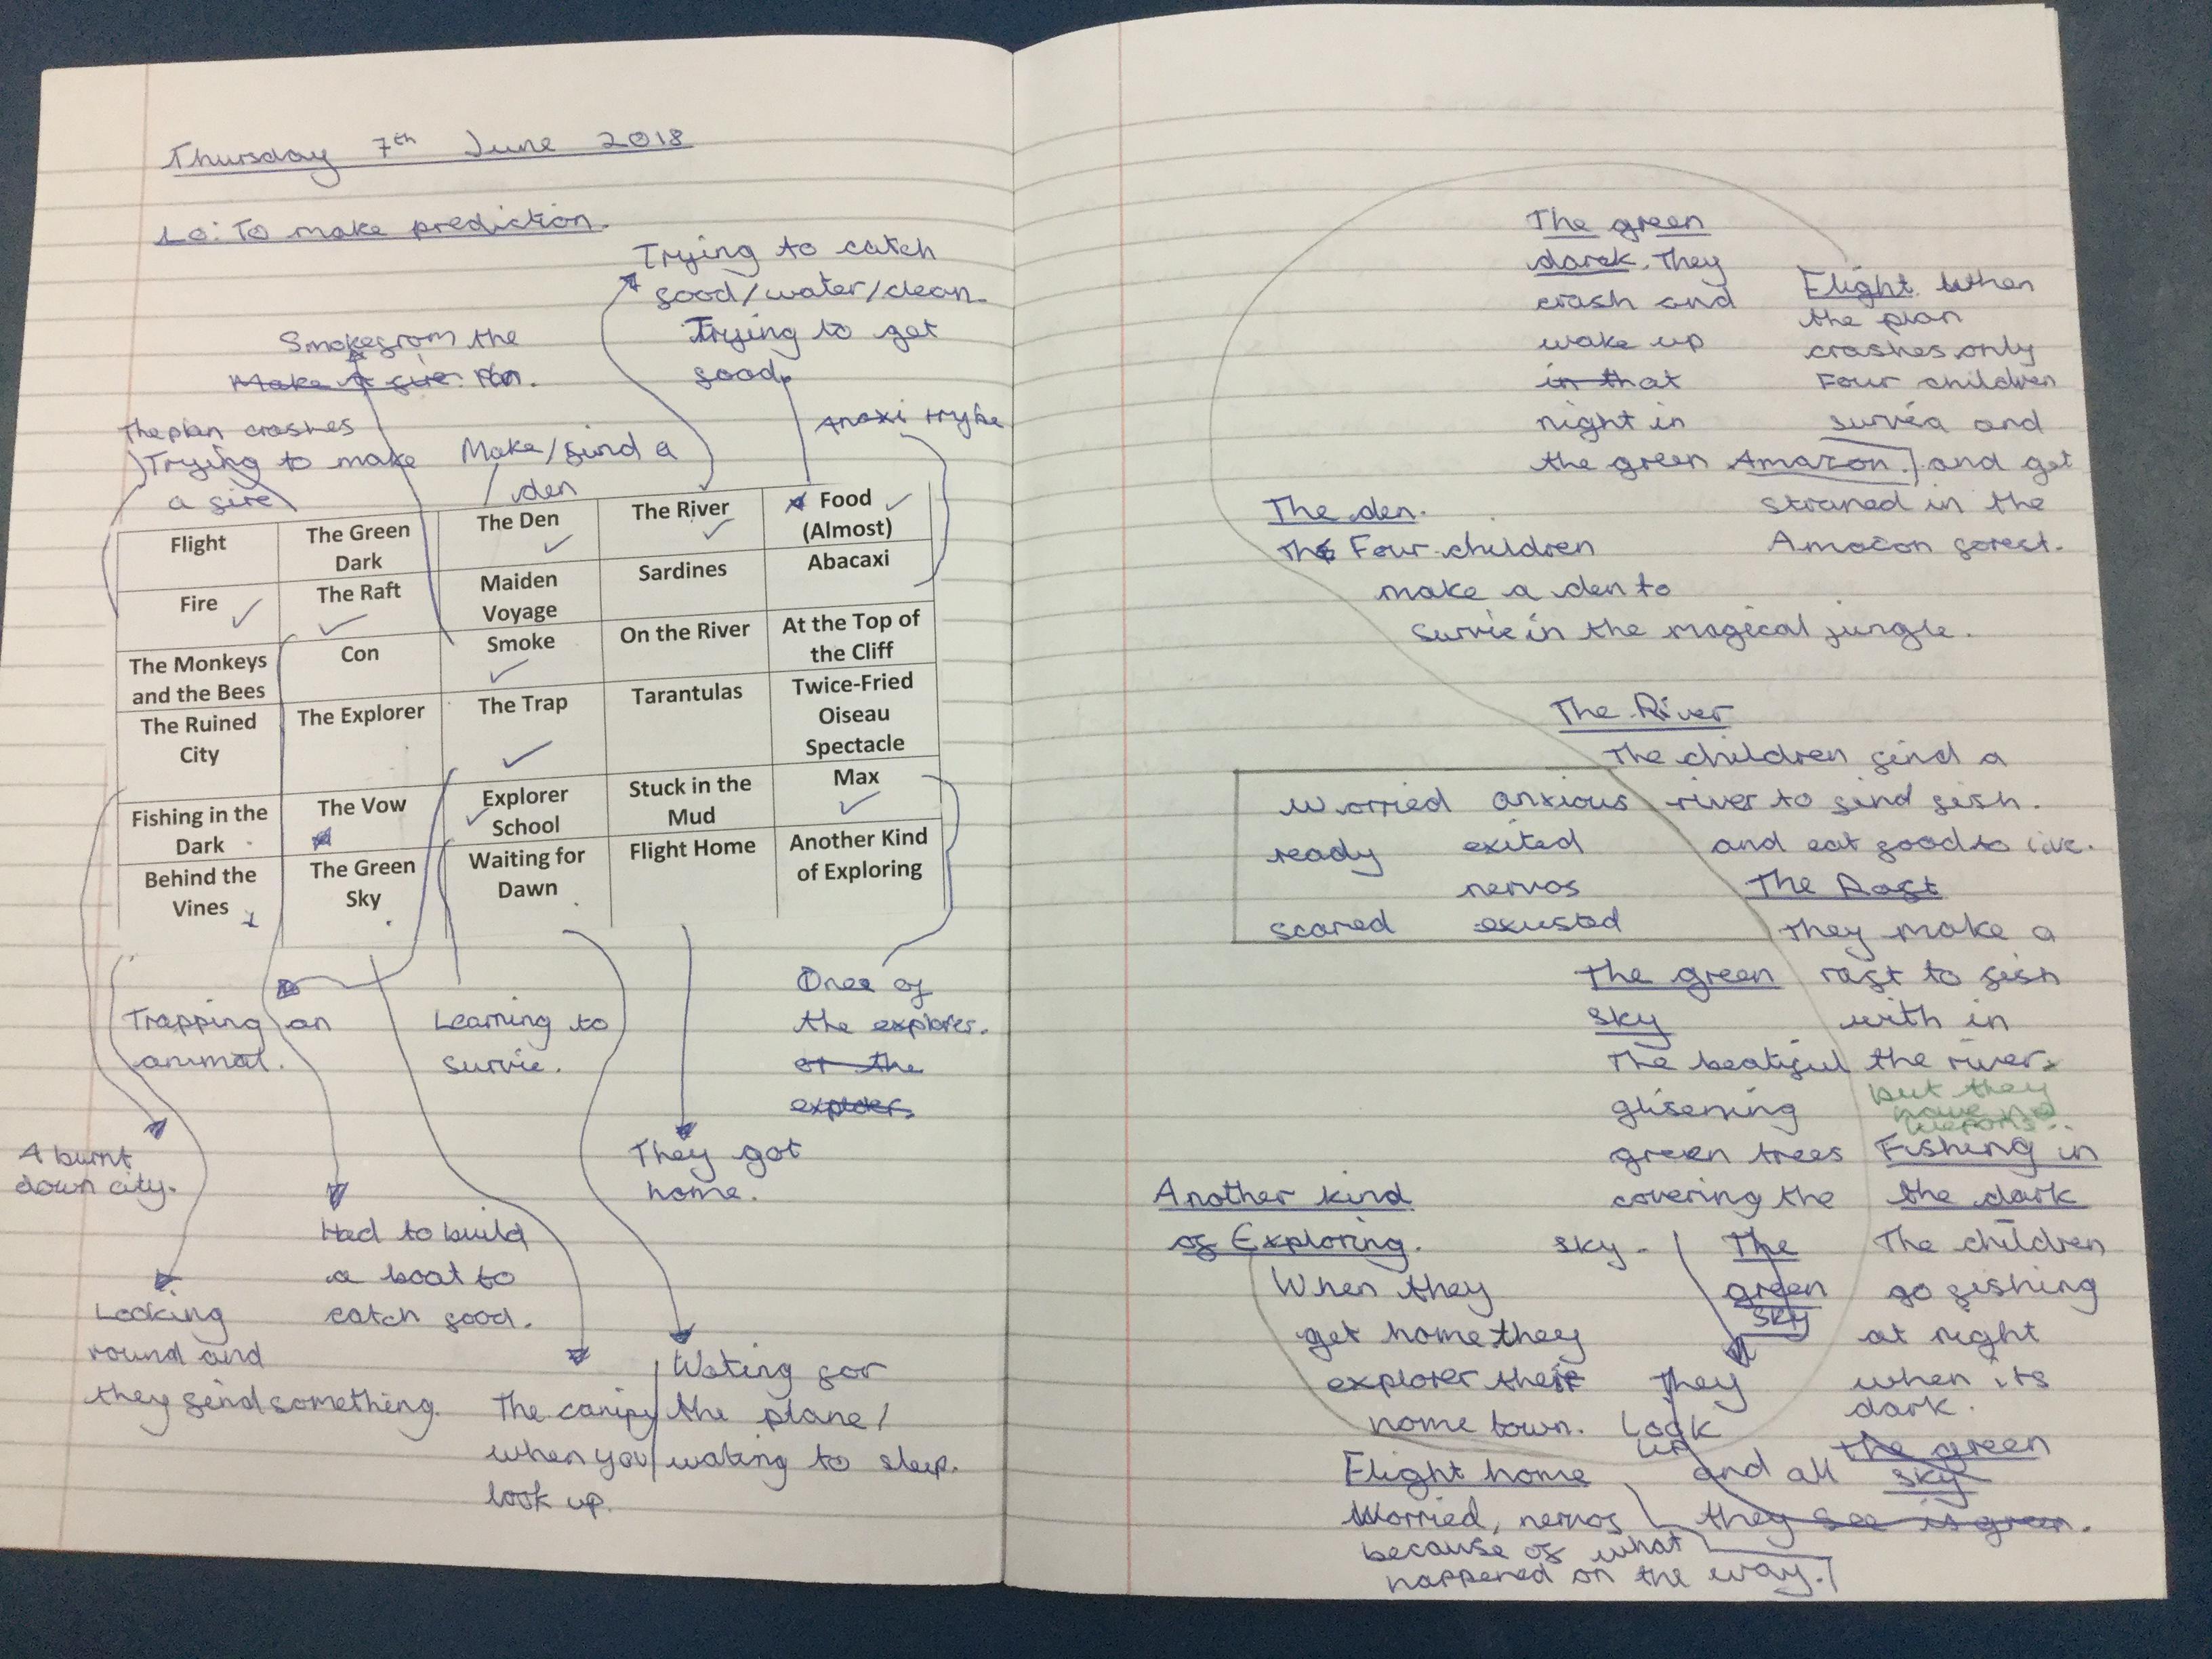 Thursday 7th June 2018
Lo: To make prediction.
Trying to catch
food/water/clean.
Trying to get
food.
Smoke from the
Make a fire. Plan.
The plan crashes
Trying to make
a fire
Make/find a
den
Anaxi trybe
Flight
The Green
Dark
The Den
The River
Food
(Almost)
Fire
The Raft
Maiden
Voyage
Sardines
Abacaxi
The Monkeys
and the Bees
Con
Smoke
On the River
At the Top of
the Cliff
The Ruined
City
The Explorer
The Trap
Tarantulas
Twice-Fried
Oiseau
Spectacle
Fishing in the
Dark
The Vow
Explorer
School
Stuck in the
Mud
Max
Behind the
Vines
The Green
Sky
Waiting for
Dawn
Flight Home
Another Kind
of Exploring
Trapping an
animal.
Learning to
survie.
Onee of
the explorer.
or the
exploer.
A burnt
down city.
They got
home.
Had to build
a boat to
catch food.
Looking
round and
they find something.
The canipy
when you
look up.
Wating for
the plane/
wating to sleep.
The green
darck. They
crash and
wake up
in that
night in
the green Amazon.
Flight When
the plan
crashes only
Four children
survéa and
and get
straned in the
Amazon forest.
The den.
The Four children
make a den to
survie in the magical jungle.
The River
The children find a
river to find fish.
and eat food to live.
worried anxious
ready exited
nervos
scared exusted
The Raft
They make a
raft to fish
with in
the river.
but they
have no
wepons.
The green
sky
The beatiful
glisening
green trees
covering the
sky.
Fishing in
the dark
The children
go fishing
at night
when its
dark.
Another kind
of Exploring.
When they
get home they
explorer their
home town.
The
green
sky
They
Look
up
and all
they see is green.
the green
sky
Flight home
Worried, nervos
because of what
happened on the way.